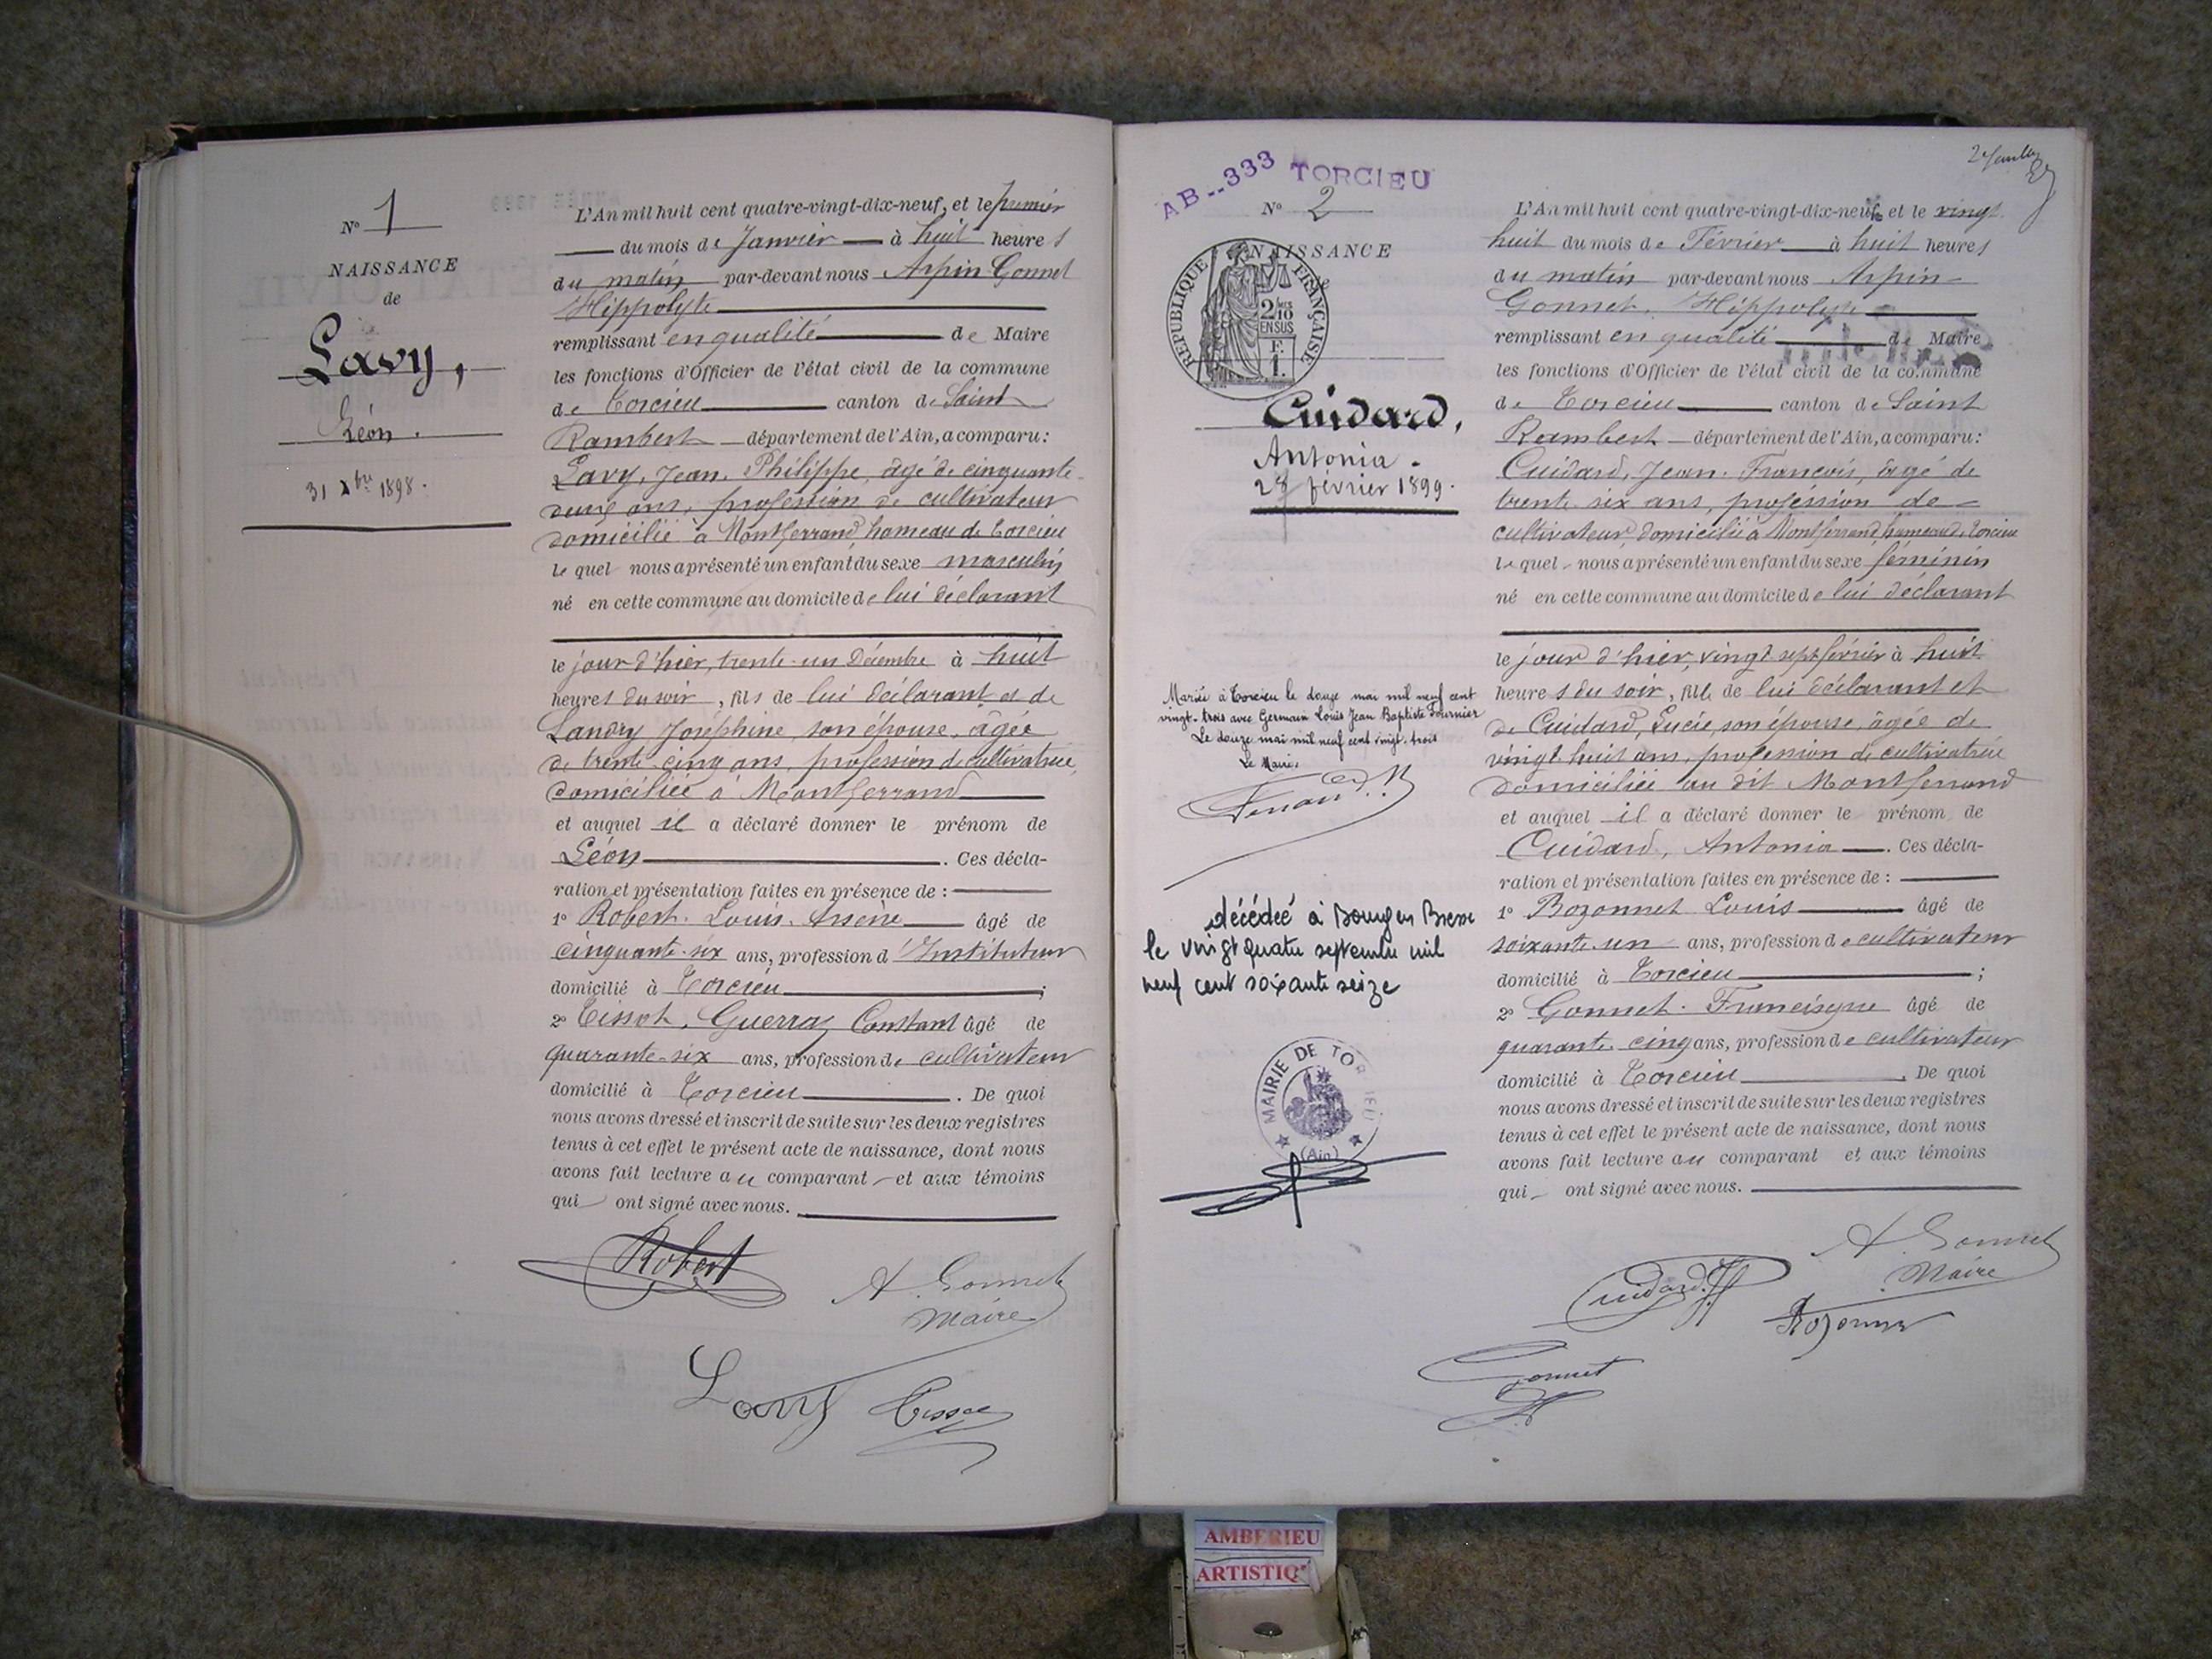 N° 1
NAISSANCE
de
Lavy,
Léon.
31 Xbre 1898.
L'An mil huit cent quatre-vingt-dix-neuf, et le premier
du mois de Janvier à huit heures
du matin par-devant nous Arpin Gonnet
Hippolyte
remplissant en qualité de Maire
les fonctions d'Officier de l'état civil de la commune
de Torcieu canton de Saint
Rambert département de l'Ain, a comparu:
Lavy, Jean, Philippe, âgé de cinquante
deux ans, profession de cultivateur
domicilié à Montferrand hameau de Torcieu
le quel nous a présenté un enfant du sexe masculin
né en cette commune au domicile de lui déclarant
le jour d'hier, trente-un Décembre à huit
heures du soir, fils de lui déclarant et de
Landry Joséphine, son épouse, âgée
de trente-cinq ans, profession de cultivatrice,
domiciliée à Montferrand
et auquel il a déclaré donner le prénom de
Léon. Ces décla-
ration et présentation faites en présence de :
1° Robert, Louis, Arsène âgé de
cinquante-six ans, profession d'Instituteur
domicilié à Torcieu;
2° Tissot, Guerraz Constant âgé de
quarante-six ans, profession de cultivateur
domicilié à Torcieu. De quoi
nous avons dressé et inscrit de suite sur les deux registres
tenus à cet effet le présent acte de naissance, dont nous
avons fait lecture au comparant et aux témoins
qui ont signé avec nous.
Robert
A. Gonnet
Maire
Lavy Tissot
AB--333 TORCIEU
N° 2
NAISSANCE
RÉPUBLIQUE FRANÇAISE
2/10
EN SUS
F.
1.
Cuidard,
Antonia.
28 février 1899.
Mariée à Torcieu le douze mai mil neuf cent
vingt-trois avec Germain Louis Jean Baptiste Fournier
Le douze mai mil neuf cent vingt-trois
Le Maire,
décédée à Bourg en Bresse
le vingt quatre septembre mil
neuf cent soixante seize
MAIRIE DE TORCIEU
(Ain)
L'An mil huit cent quatre-vingt-dix-neuf, et le vingt
huit du mois de Février à huit heures
du matin par-devant nous Arpin
Gonnet, Hippolyte
remplissant en qualité de Maire
les fonctions d'Officier de l'état civil de la commune
de Torcieu canton de Saint
Rambert département de l'Ain, a comparu:
Cuidard, Jean, François, âgé de
trente-six ans, profession de
cultivateur domicilié à Montferrand hameau de Torcieu
le quel nous a présenté un enfant du sexe féminin
né en cette commune au domicile de lui déclarant
le jour d'hier, vingt sept février à huit
heures du soir, fille de lui déclarant et
de Cuidard, Lucie, son épouse, âgée de
vingt huit ans, profession de cultivatrice
domiciliée au dit Montferrand
et auquel il a déclaré donner le prénom de
Cuidard, Antonia. Ces décla-
ration et présentation faites en présence de :
1° Bozonnet Louis âgé de
soixante-un ans, profession de cultivateur
domicilié à Torcieu;
2° Gonnet Francisque âgé de
quarante-cinq ans, profession de cultivateur
domicilié à Torcieu. De quoi
nous avons dressé et inscrit de suite sur les deux registres
tenus à cet effet le présent acte de naissance, dont nous
avons fait lecture au comparant et aux témoins
qui ont signé avec nous.
A. Gonnet
Maire
Cuidard
Bozonnet
Gonnet
AMBERIEU
ARTISTIQ